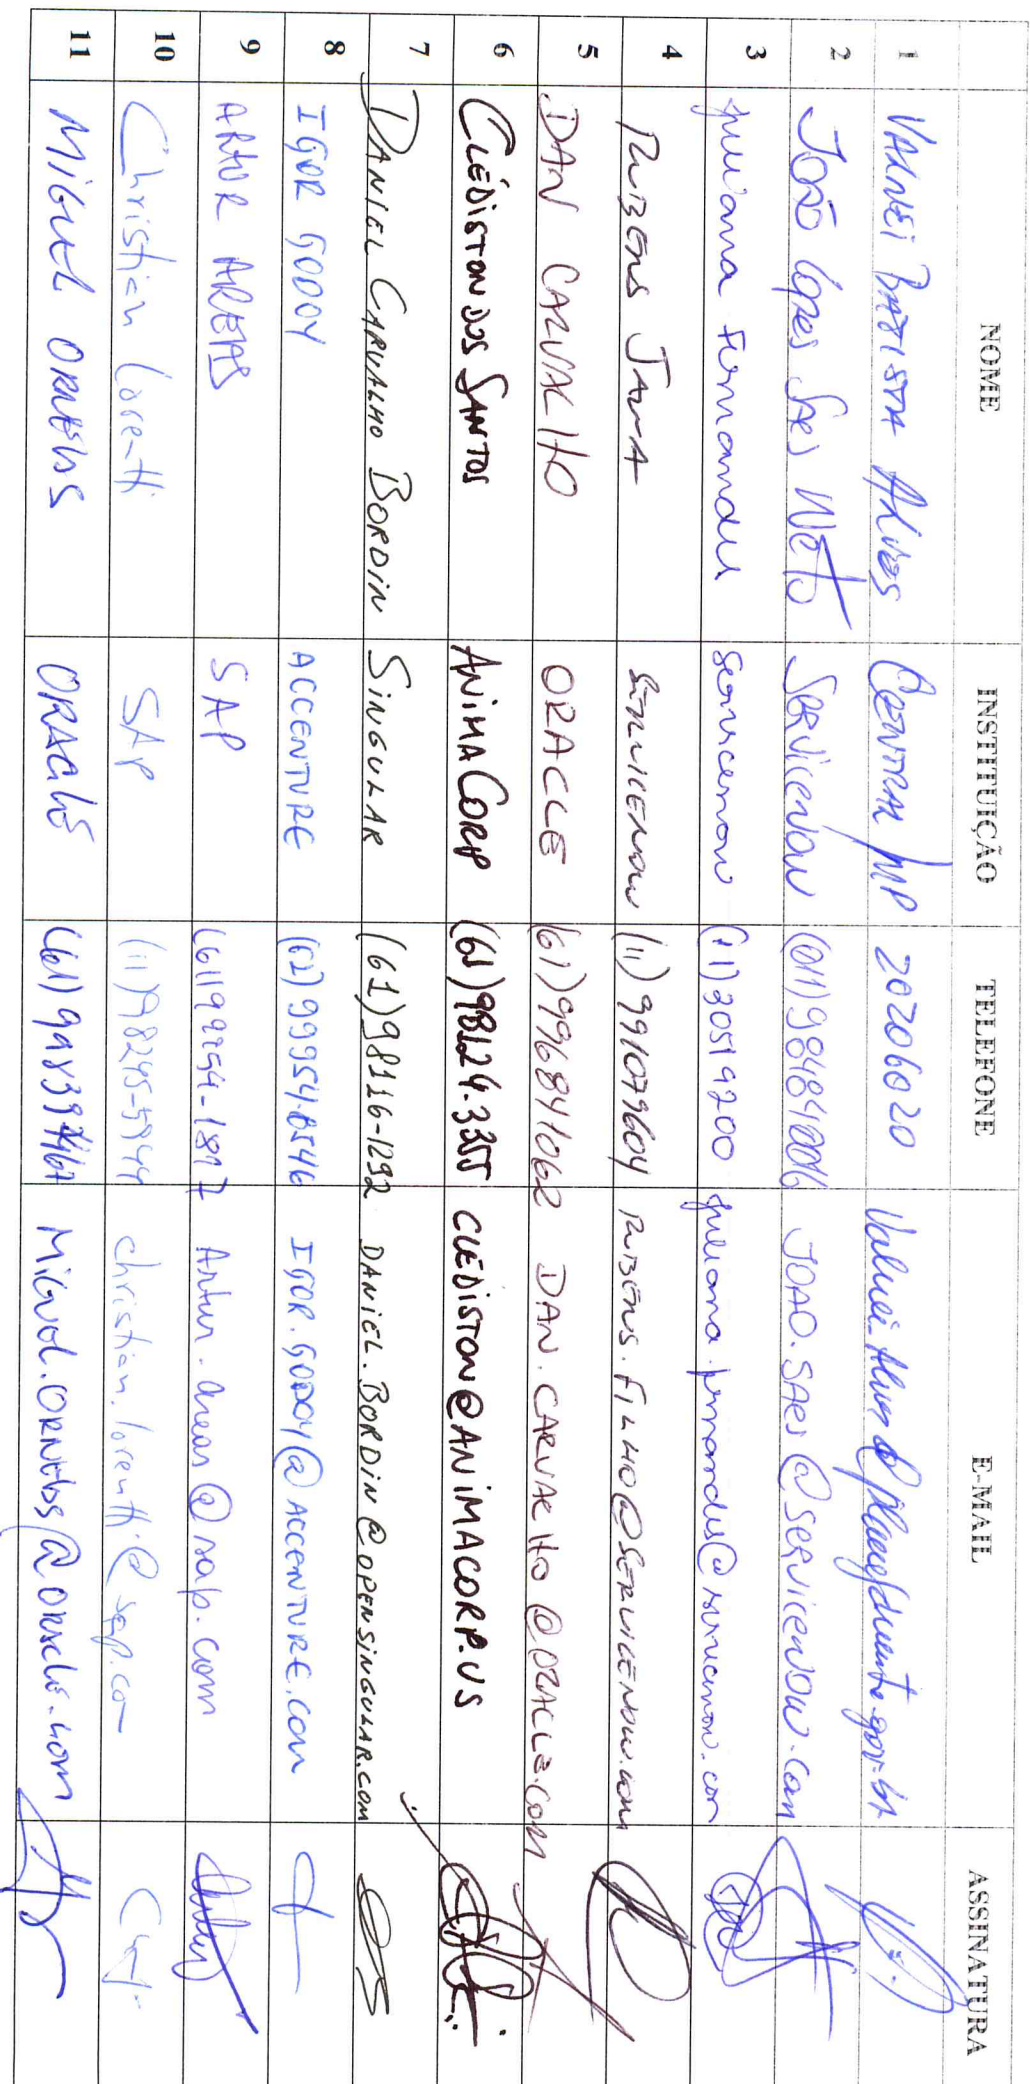 NOME INSTITUIÇÃO TELEFONE E-MAIL ASSINATURA
1 VALNEI BATISTA ALVES CENTRAL 20206020
2 JOÃO LOPES SAES NETO SERVICENOW JOAO.SAES@SERVICENOW.COM
3 Juliana Fernandes Servicenow (11) 30519200 juliana.fernandes@servicenow.com
4 RUBENS JAMA SERVICENOW (11) 991079604 RUBENS.FILHO@SERVICENOW.COM
5 DAN CARVALHO ORACLE (61) 996841062 DAN.CARVALHO@ORACLE.COM
6 CLÉDISTON DOS SANTOS ANIMACORP (61) 98124.3355 CLEDISTON@ANIMACORP.US
7 DANIEL CARVALHO BORDIN SINGULAR (61) 98116-1292 DANIEL.BORDIN@OPENSINGULAR.COM
8 IGOR GODOY ACCENTURE (62) 99954.8546 IGOR.GODOY@ACCENTURE.COM
9 ARTUR AREAS SAP (61) 99954-1817 Artur.areas@sap.com
10 Christian Lorentti SAP (11) 98245-5944 christian.lorentti@sap.com
11 MIGUEL ORNELAS ORACLE MIGUEL.ORNELAS@ORACLE.COM